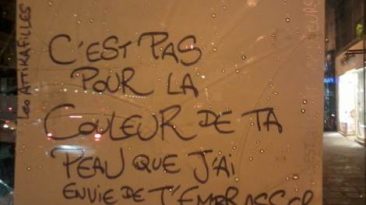 C'EST PAS
POUR LA
COULEUR DE TA
PEAU QUE J'AI
ENVIE DE T'EMBRASSER
LEO ATTIKAFILLES